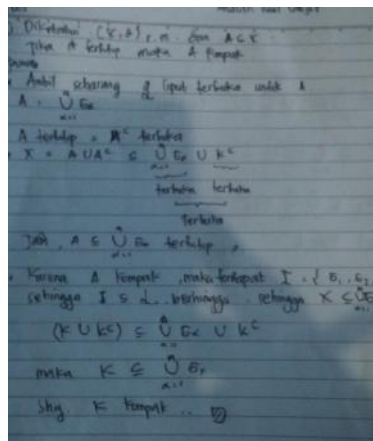 Diketahui (X, d) r.m. dan A ⊆ X
Jika A tertutup maka A kompak
Ambil sebarang liput terbuka untuk A
A = ∪ Eα
A tertutup = Aᶜ terbuka
X = A ∪ Aᶜ ⊆ ∪ Eα ∪ Kᶜ
terbuka terbuka
Terbuka
Jadi, A ⊆ ∪ Eα tertutup,
Karena A kompak, maka terdapat I = { E₁, E₂
sehingga I ⊆ berhingga sehingga X ⊆ ∪E
(K ∪ Kᶜ) ⊆ ∪ Eα ∪ Kᶜ
maka K ⊆ ∪ Eα
shg. K kompak ..